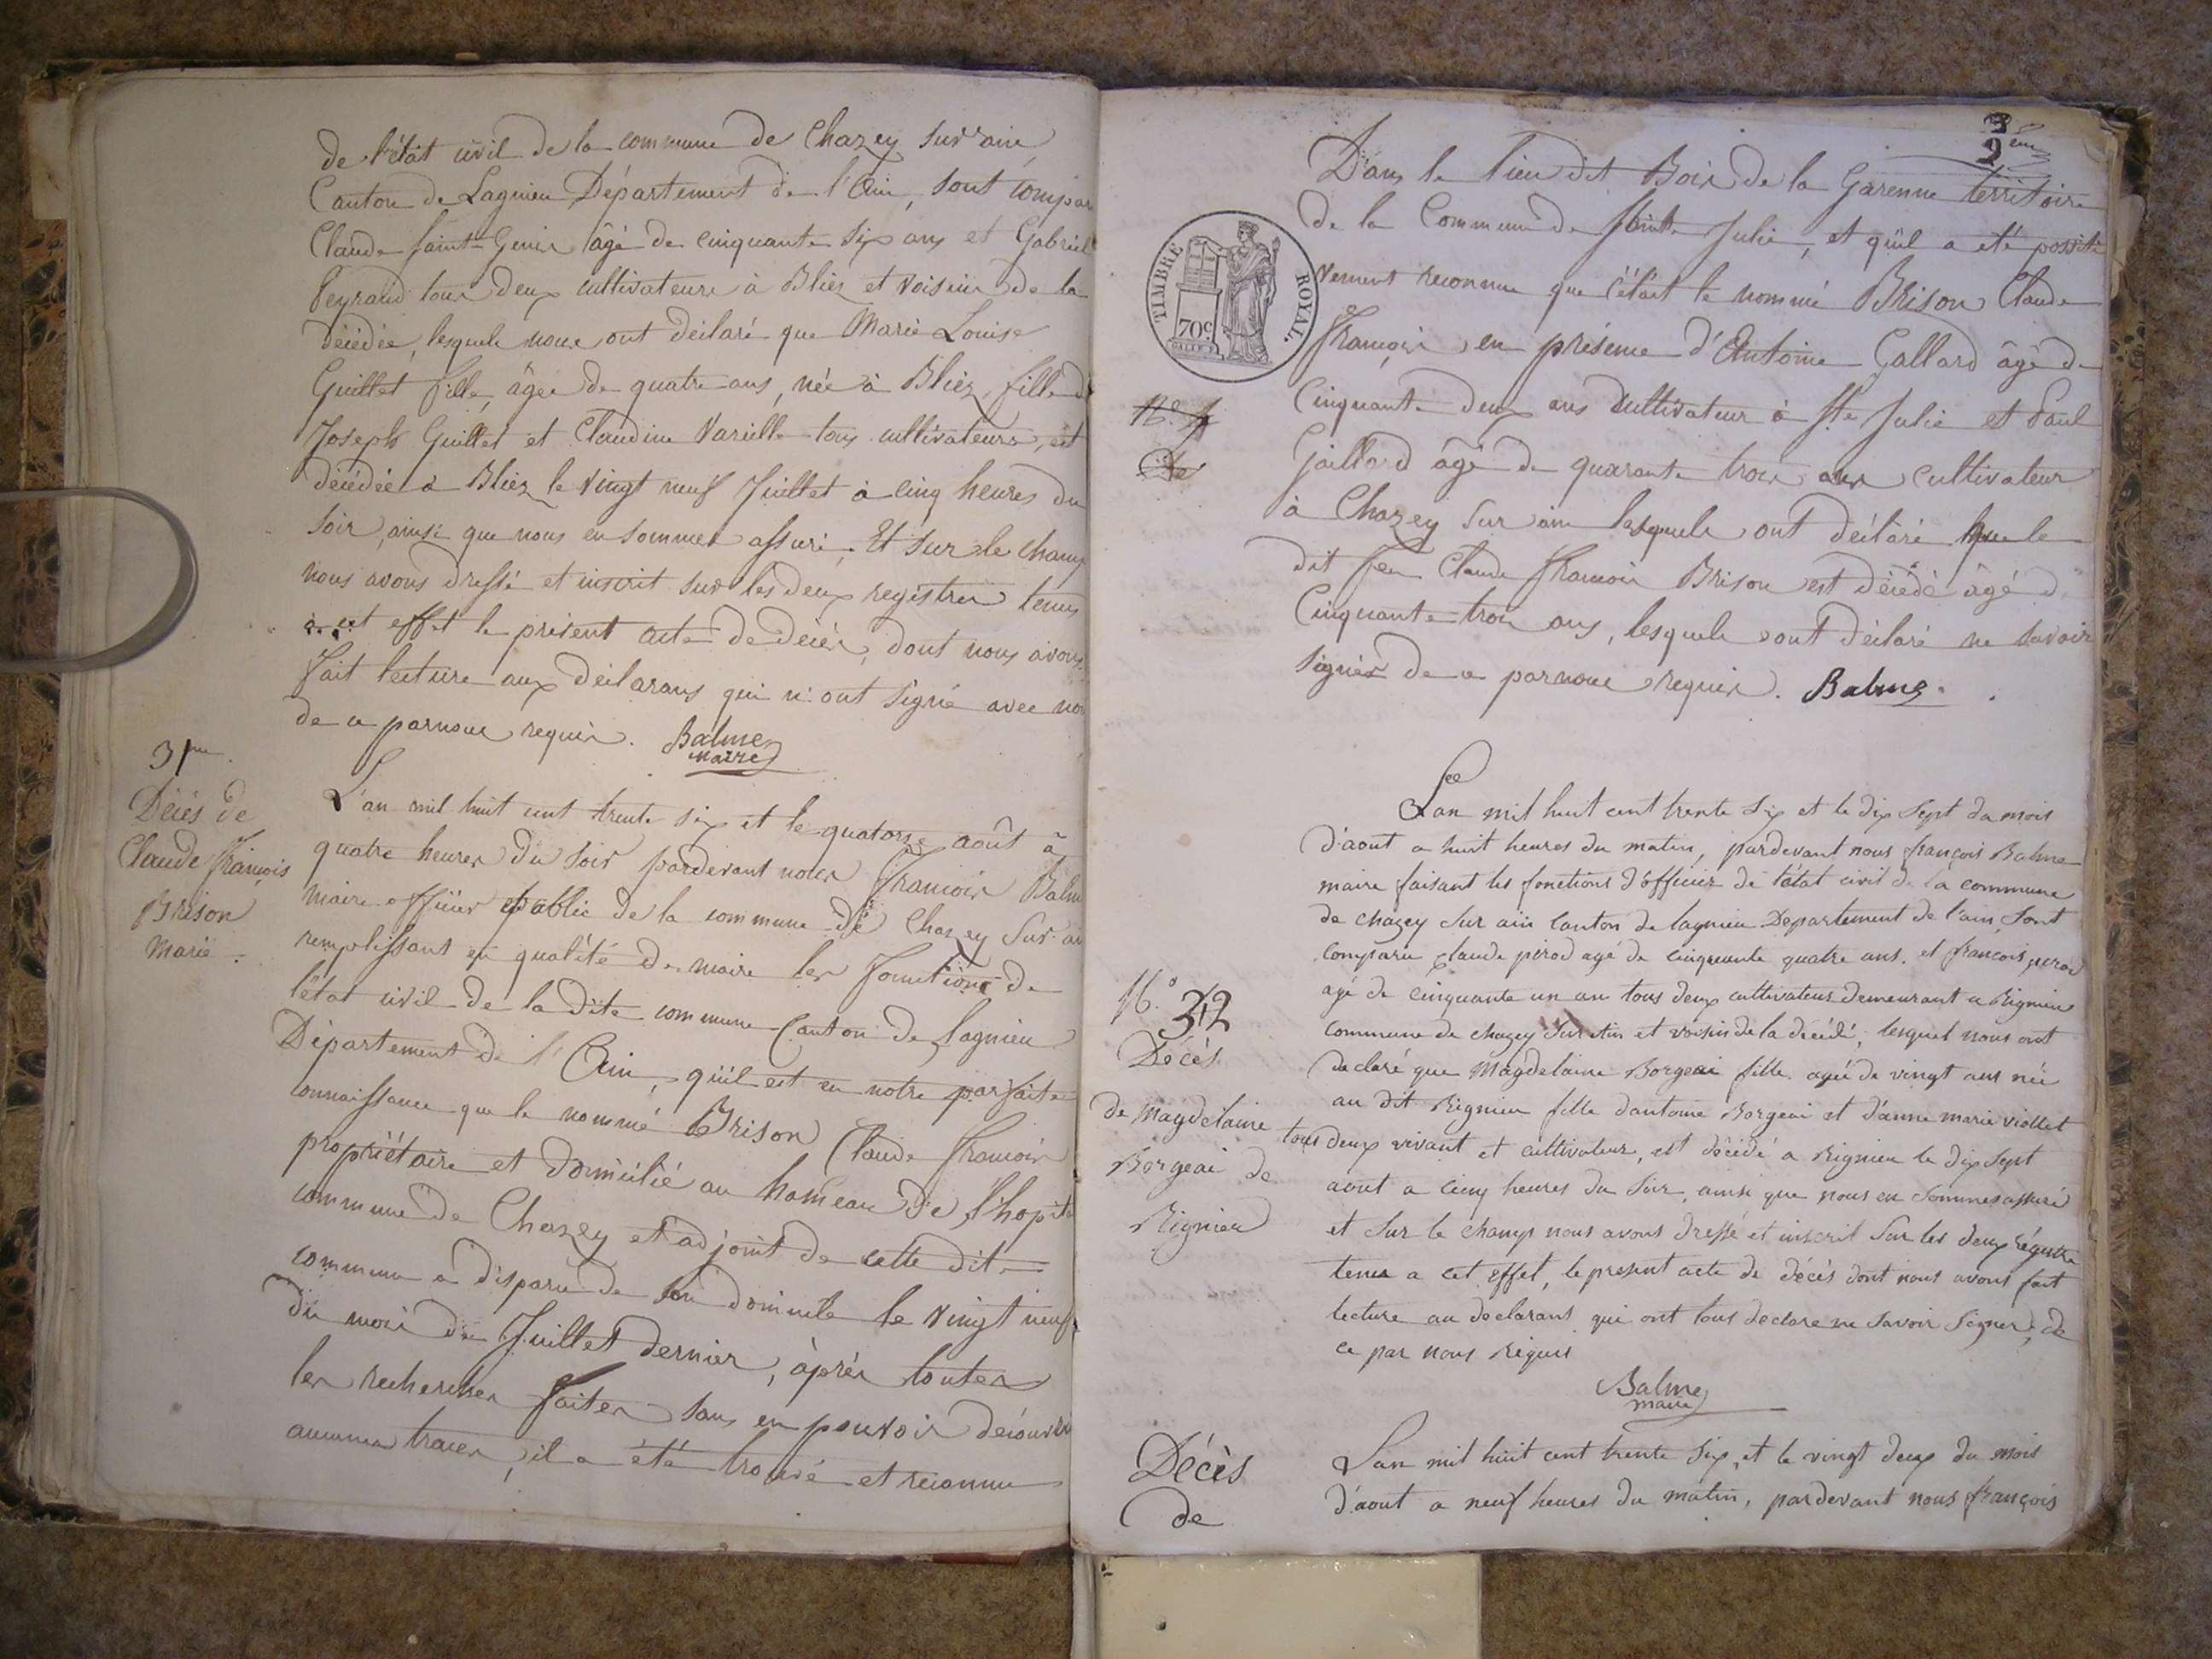 de l'état civil de la commune de Chazey sur ain
Canton de Lagnieu Département de l'Ain, sont compar
Claude Saint-Genis âgé de cinquante six ans et Gabriel
Peyraud tous deux cultivateurs à Bliez et voisins de la
décédée, lesquels nous ont déclaré que Marie Louise
Guillet fille, âgée de quatre ans, née à Bliez, fille d
Joseph Guillet et Claudine Varielle tous cultivateurs, est
décédée à Bliez le vingt neuf Juillet à cinq heures du
soir, ainsi que nous en sommes assuré. Et sur le champ
nous avons dressé et inscrit sur les deux registres tenus
à cet effet le présent acte de décès, dont nous avons
fait lecture aux déclarans qui n'ont signé avec nou
de ce par nous requis. Balme
maire
31me
Décès de
Claude François
Brison
Marié.
L'an mil huit cent trente six et le quatorze août à
quatre heures du soir pardevant nous François Balm
maire officier public de la commune de Chazey sur ai
remplissant en qualité de maire les fonctions de
l'état civil de la dite commune Canton de Lagnieu
Département de l'Ain, qu'il est en notre parfaite
connaissance que le nommé Brison Claude François
propriétaire et domicilié au hameau de l'hopit
commune de Chazey et adjoint de cette dite
commune a disparu de son domicile le vingt neuf
du mois de Juillet dernier, après toutes
les recherches faites sans en pouvoir découvrir
aucunes traces, il a été trouvé et reconnu
3
2em
Dans le lieu dit Bois de la Garenne territoire
de la Commune de Sainte Julie, et qu'il a été positi
vement reconnu que c'était le nommé Brison Claude
François en présence d'Antoine Gallard âgé de
Cinquante deux ans cultivateur à Ste Julie et Paul
Gaillard âgé de quarante trois ans cultivateur
à Chazey sur ain lesquels ont déclaré que le
dit feu Claude François Brison est décédé âgé d
Cinquante trois ans, lesquels ont déclaré ne savoir
signer de ce par nous requis. Balme.
TIMBRE ROYAL.
70c
N.°
N.° 32
Décès
de Magdelaine
Borgeai de
Rignieu
L'an mil huit cent trente six et le dix sept du mois
d'aout a huit heures du matin, pardevant nous françois Balme
maire faisant les fonctions d'officier de l'état civil de la commune
de chazey sur ain canton de lagnieu Departement de l'ain, sont
comparu claude pérod agé de cinquante quatre ans. et françois perod
agé de cinquante un an tous deux cultivateurs demeurant a Rignieu
commune de chazey sur Ain et voisin de la décédé, lesquel nous ont
declaré que Magdelaine Borgeai fille. agée de vingt ans née
au dit Rignieu fille d'antoine Borgeai et d'anne marie viollet
tous deux vivant et cultivateur, est décédé a Rignieu le dix sept
aout a cinq heures du soir, ainsi que nous en sommes assuré
et sur le champ nous avons dressé et inscrit sur les deux régistre
tenus a cet effet, le present acte de décès dont nous avons fait
lecture au declarans qui ont tous declare ne savoir signer, de
ce par nous Réquis
Balme
maire
Décès
de
L'an mil huit cent trente six, et le vingt deux du mois
d'aout a neuf heures du matin, pardevant nous françois